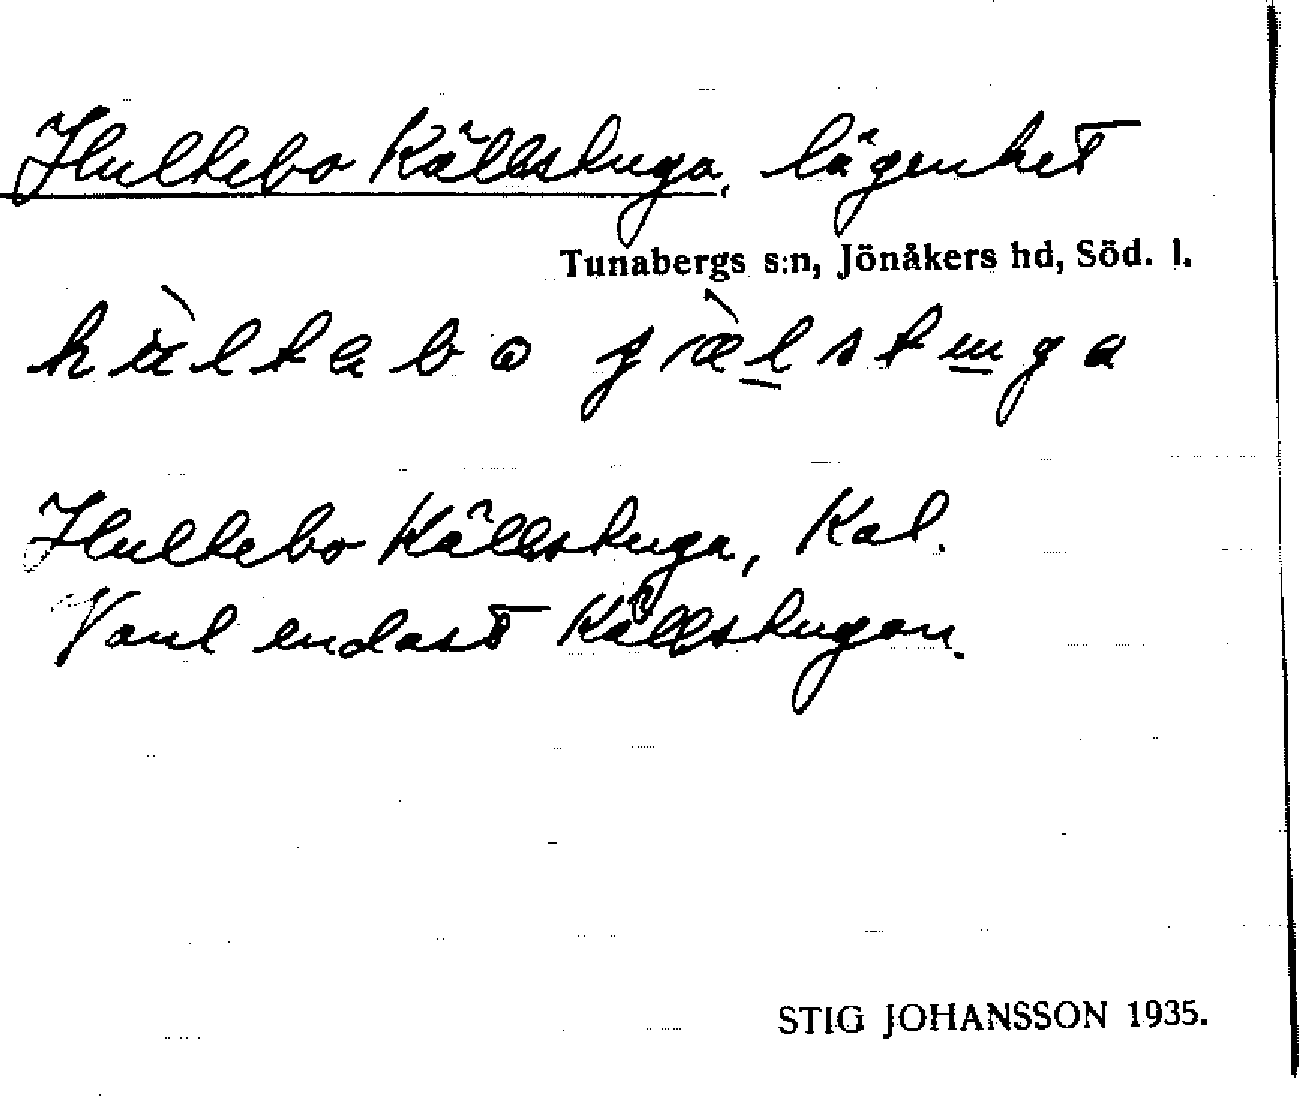 Hultebo Källstuga, lägenhet
Tunabergs s:n, Jönåkers hd, Söd. l.
Hultebo Källstuga, Kal.
Vanl endast Källstugan.
STIG JOHANSSON 1935.